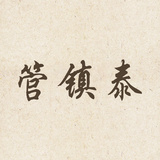 管镇泰